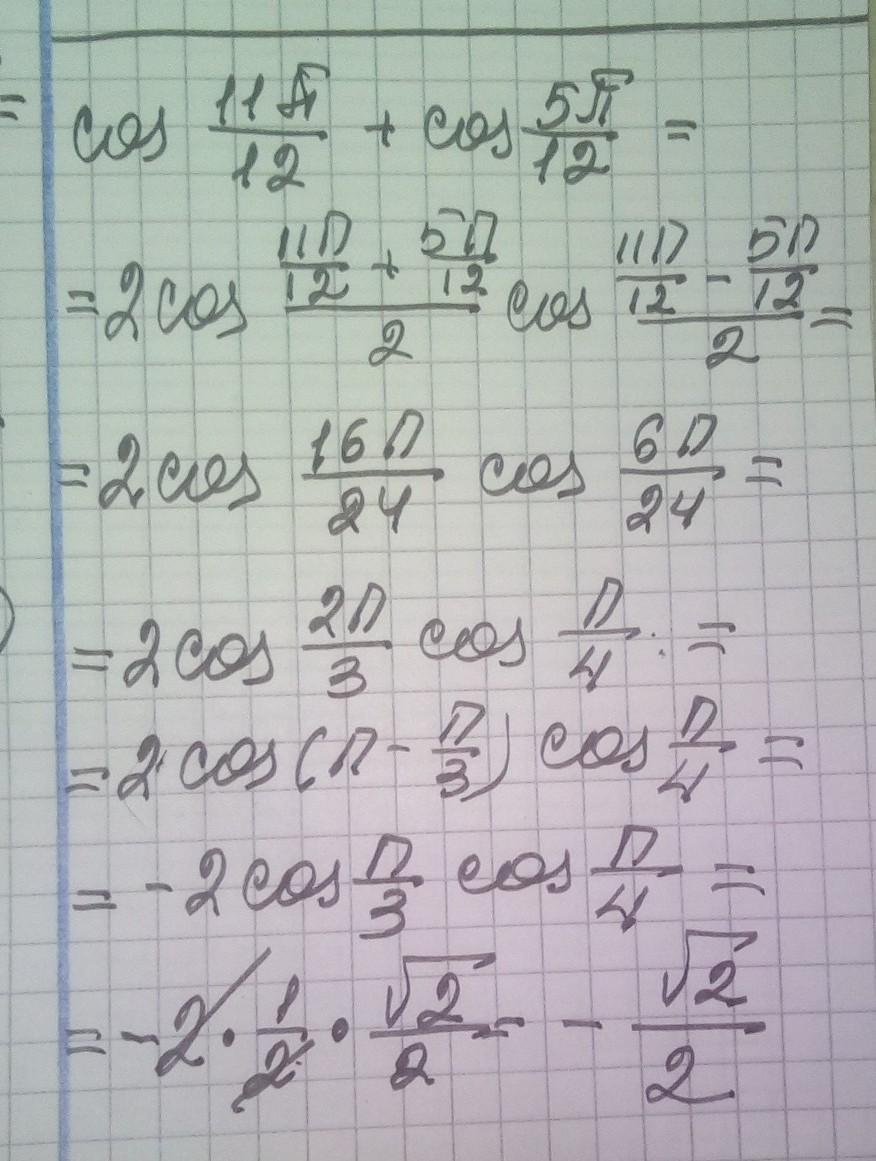 =
cos 11π/12 + cos 5π/12 =
= 2 cos (11П/12 + 5П/12)/2 cos (11П/12 - 5П/12)/2 =
= 2 cos 16П/24 cos 6П/24 =
= 2 cos 2П/3 cos П/4 . =
= 2 cos (П - П/3) cos П/4 =
= -2 cos П/3 cos П/4 =
= -2 · 1/2 · √2/2 = - √2/2